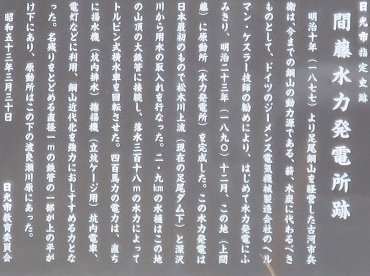 日光市指定史跡
間藤水力発電所跡
明治十年(一八七七)より足尾銅山を経営した古河市兵
衛は、今までの銅山の動力源である、薪、木炭に代わるべき
ものとして、ドイツのジーメンス電気機械製造会社のヘル
マン・ケスラー技師の勧めにより、はじめて水力発電にふ
みきり、明治二十三年(一八九〇)十二月、この地(上間
藤)に原動所(水力発電所)を完成した。この水力発電は
日本最初のもので松木川上流(現在の足尾ダム下)と深沢
川から用水の取入れを行なった。二・九kmの水樋はこの地
の山頂の大鉄管に接続し、落水三百十八mの水力によって
トルビン式横水車を回転させた。四百馬力の電力は、直ち
に揚水機(坑内排水)捲揚機(立坑ケージ用)坑内電車、
電灯などに利用、銅山近代化を強力におしすすめる力とな
った。名残りをとどめる直径一mの鉄管の一部が上の平が
け下にあり、原動所はこの下の渡良瀬川原にあった。
昭和五十三年三月三十日
日光市教育委員会